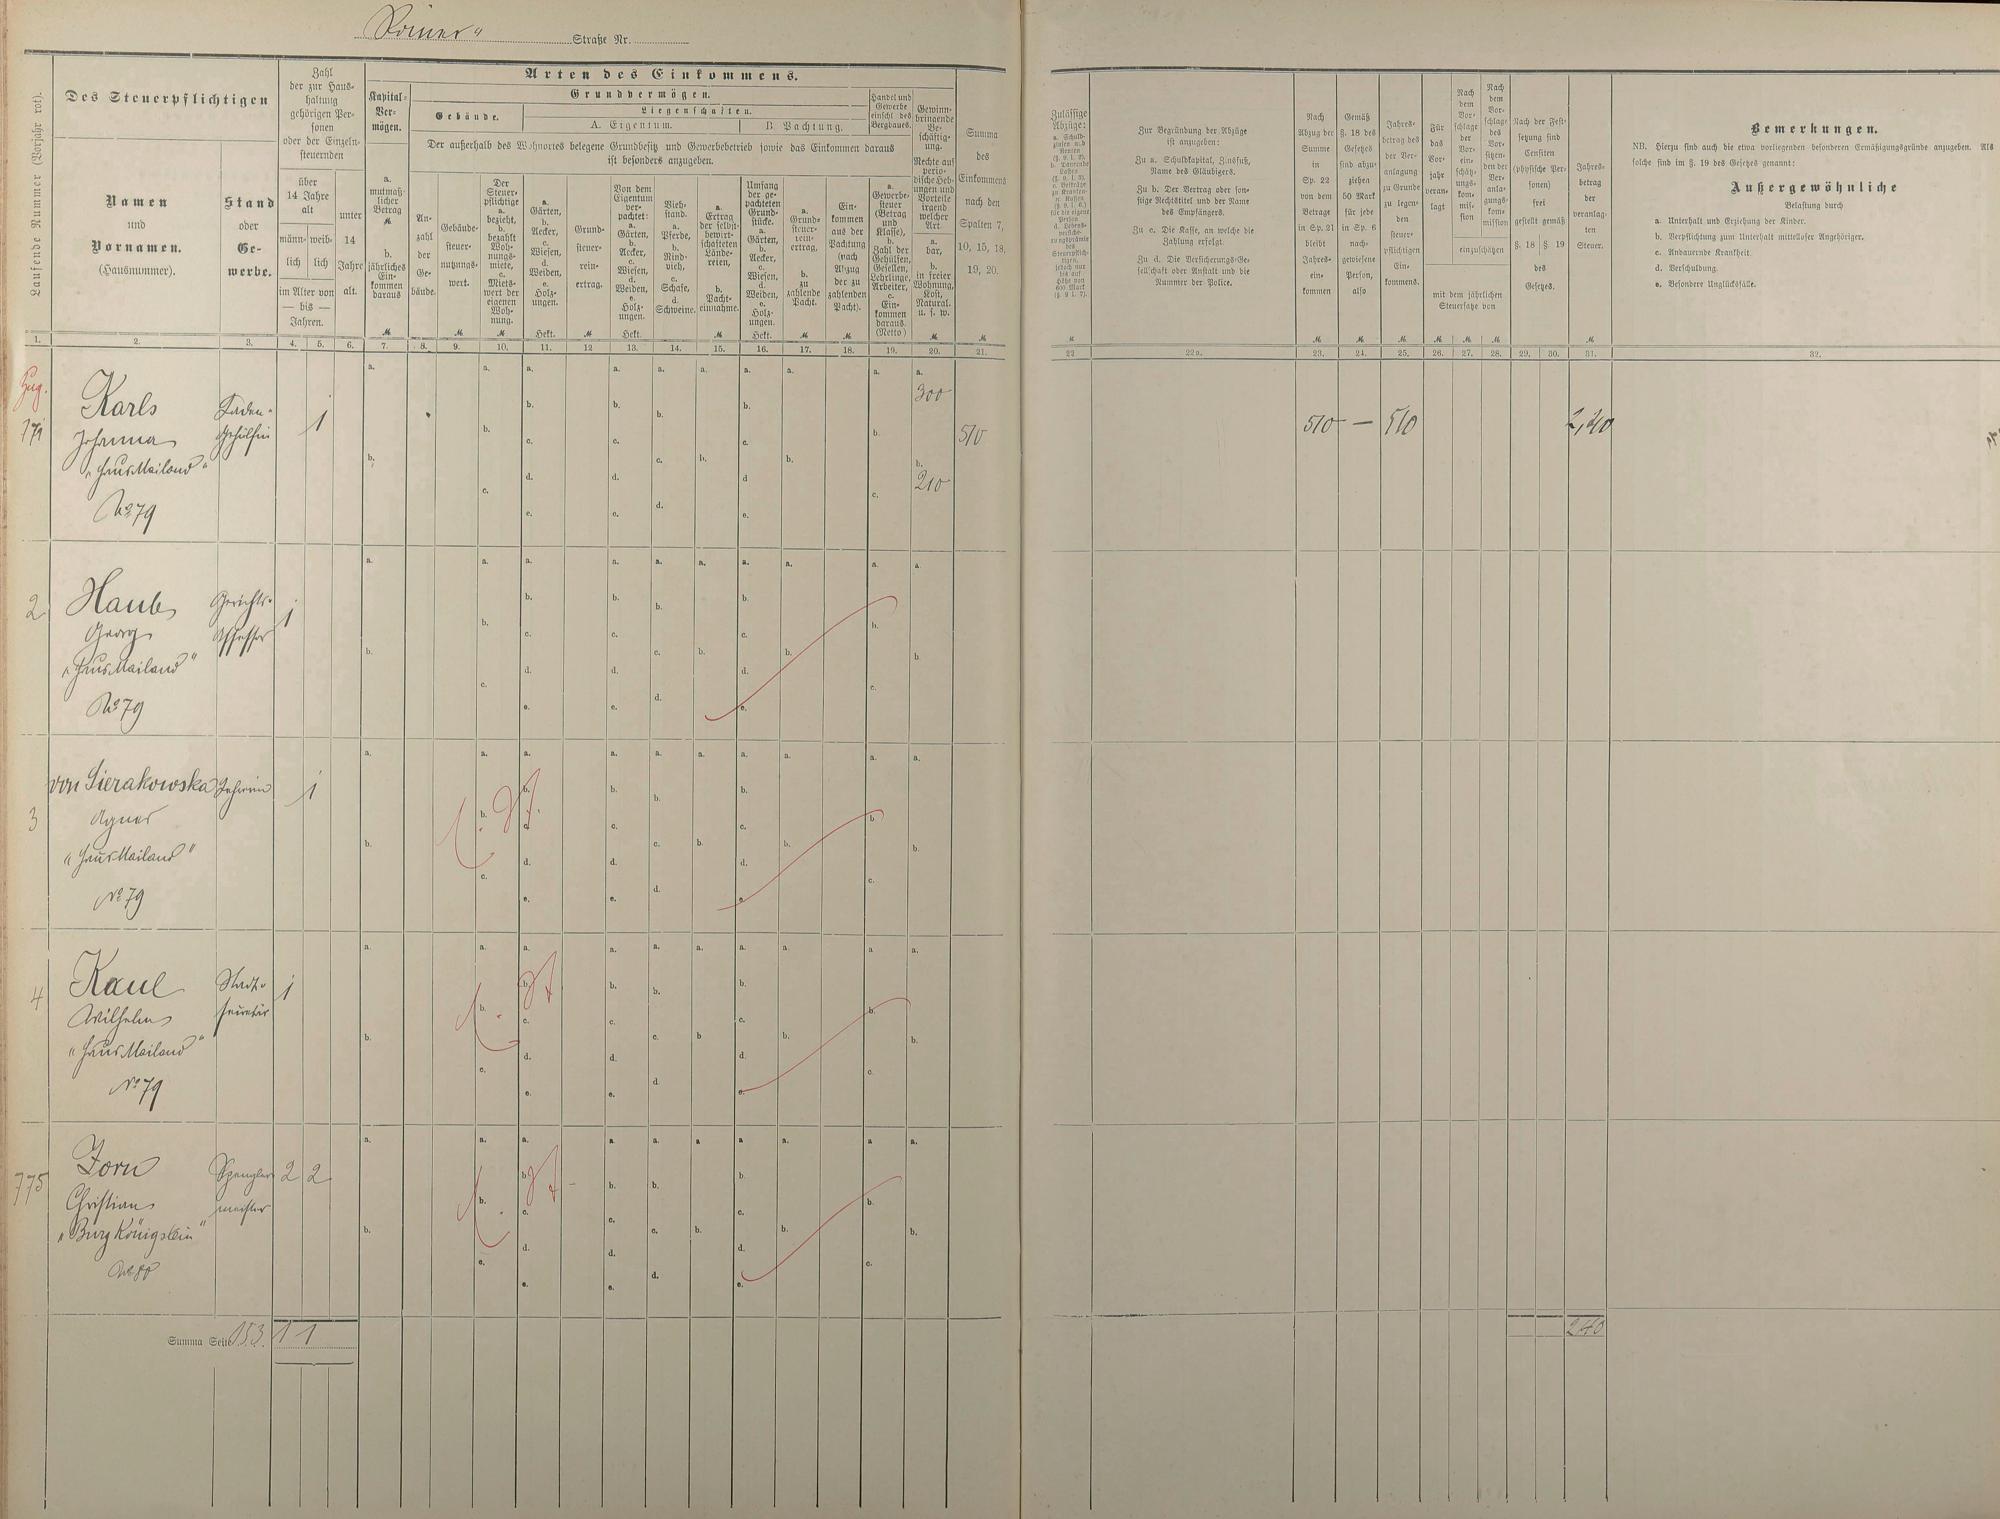 Straße Nr.
Laufende Nummer (Vorjahr rot).
Des Steuerpflichtigen
Namen
und
Vornamen.
(Hausnummer).
Stand
oder
Ge-
werbe.
Zahl
der zur Haus-
haltung
gehörigen Per-
sonen
oder der Einzeln-
steuernden
über
14 Jahre
alt
männ-
lich
weib-
lich
im Alter von
— bis —
Jahren.
unter
14
Jahre
alt.
Arten des Einkommens.
Kapital-
Ver-
mögen.
a.
mutmaß-
licher
Betrag
M
b.
jährliches
Ein-
kommen
daraus
M
Grundvermögen.
Gebäude.
Liegenschaften.
A. Eigentum.
B. Pachtung.
Der außerhalb des Wohnortes belegene Grundbesitz und Gewerbebetrieb sowie das Einkommen daraus
ist besonders anzugeben.
An-
zahl
der
Ge-
bäude.
Gebäude-
steuer-
nutzungs-
wert.
M
Der
Steuer-
pflichtige
a.
bezieht,
b.
bezahlt
Woh-
nungs-
miete,
c.
Miets-
wert der
eigenen
Woh-
nung.
M
a.
Gärten,
b.
Aecker,
c.
Wiesen,
d.
Weiden,
e.
Holz-
ungen.
Hekt.
Grund-
steuer-
rein-
ertrag.
M
Von dem
Eigentum
ver-
pachtet:
a.
Gärten,
b.
Aecker,
c.
Wiesen,
d.
Weiden,
e.
Holz-
ungen.
Hekt.
Vieh-
stand.
a.
Pferde,
b.
Rind-
vieh,
c.
Schafe,
d.
Schweine.
a.
Ertrag
der selbst-
bewirt-
schafteten
Lände-
reien,
b.
Pacht-
einnahme.
M
Umfang
der ge-
pachteten
Grund-
stücke.
a.
Gärten,
b.
Aecker,
c.
Wiesen,
d.
Weiden,
e.
Holz-
ungen.
Hekt.
a.
Grund-
steuer-
rein-
ertrag,
b.
zu
zahlende
Pacht.
M
Ein-
kommen
aus der
Pachtung
(nach
Abzug
der zu
zahlenden
Pacht).
M
Handel und
Gewerbe
einschl. des
Bergbaues.
a.
Gewerbe-
steuer
(Betrag
und
Klasse),
b.
Zahl der
Gehülfen,
Gesellen,
Lehrlinge,
Arbeiter,
c.
Ein-
kommen
daraus.
(Netto)
Gewinn-
bringende
Be-
schäftig-
ung.
Rechte auf
perio-
dische Heb-
ungen und
Vorteile
irgend
welcher
Art.
a.
bar,
b.
in freier
Wohnung,
Kost,
Natural.
u. s. w.
M
Summa
des
Einkommens
nach den
Spalten 7,
10, 15, 18,
19, 20.
M
Zulässige
Abzüge:
Zur Begründung der Abzüge
ist anzugeben:
Zu a. Schuldkapital, Zinsfuß,
Name des Gläubigers.
Zu b. Der Vertrag oder son-
stige Rechtstitel und der Name
des Empfängers.
Zu c. Die Kasse, an welche die
Zahlung erfolgt.
Zu d. Die Versicherungs-Ge-
sellschaft oder Anstalt und die
Nummer der Police.
Nach
Abzug der
Summe
in
Sp. 22
von dem
Betrage
in Sp. 21
bleibt
Jahres-
ein-
kommen
M
Gemäß
§. 18 des
Gesetzes
sind abzu-
ziehen
50 Mark
für jede
in Sp. 6
nach-
gewiesene
Person,
also
M
Jahres-
betrag des
der Ver-
anlagung
zu Grunde
zu legen-
den
steuer-
pflichtigen
Ein-
kommens.
M
Für
das
Vor-
jahr
veran-
lagt
Nach
dem
Vor-
schlage
der
Vor-
ein-
schätz-
ungs-
kom-
mis-
sion
Nach
dem
Vor-
schlag-
des
Vor-
sitzen-
den der
Ver-
anla-
gungs-
kom-
mission
einzuschätzen
mit dem jährlichen
Steuersatze von
M M M
Nach der Fest-
setzung sind
Censiten
(physische Per-
sonen)
frei
gestellt gemäß
§. 18 §. 19
des
Gesetzes.
Jahres-
betrag
der
veranlag-
ten
Steuer.
M
Bemerkungen.
NB. Hierzu sind auch die etwa vorliegenden besonderen Ermäßigungsgründe anzugeben. Als
solche sind im §. 19 des Gesetzes genannt:
Außergewöhnliche
Belastung durch
a. Unterhalt und Erziehung der Kinder.
b. Verpflichtung zum Unterhalt mittelloser Angehöriger.
c. Andauernde Krankheit.
d. Verschuldung.
e. Besondere Unglücksfälle.
1. 2. 3. 4. 5. 6. 7. 8. 9. 10. 11. 12 13. 14. 15. 16. 17. 18. 19. 20. 21.
22 22a. 23. 24. 25. 26. 27. 28. 29. 30. 31. 32.
Zug.
771
Karls
Johanna
"Haus Mailand"
No 79
Laden-
Gehülfin
1
300
210
510
510 — 510
2,40
2
Haub
Georg
"Haus Mailand"
No 79
Gerichts-
Assessor
1
3
von Sierakowska
Agnes
"Haus Mailand"
No 79
1
4
Kaul
Wilhelm
"Haus Mailand"
No 79
Stadt-
sekretär
1
775
Zorn
Christian
"Burg Königstein"
No 80
Spengler-
meister
2 2
Summa Seite 153. 1 1
2,40